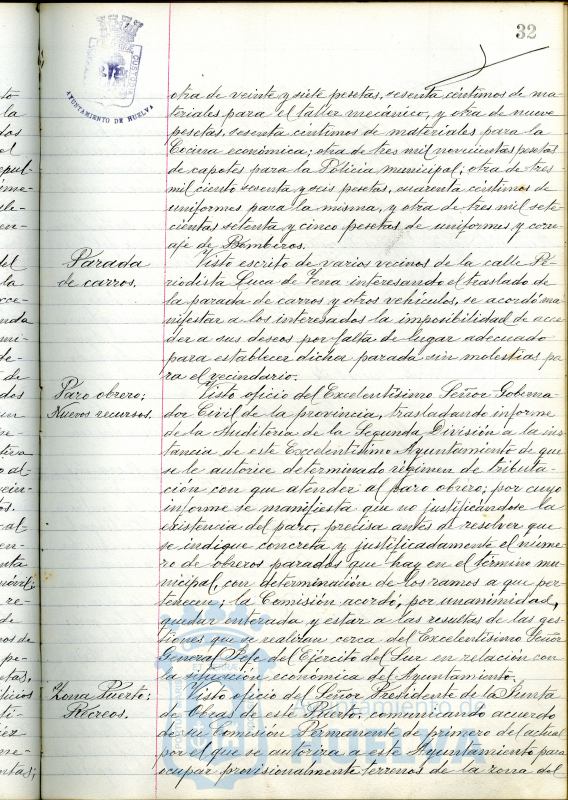 32
AYUNTAMIENTO DE HUELVA
otra de veinte y siete pesetas, sesenta céntimos de ma-
teriales para el taller mecánico, y otra de nueve
pesetas, sesenta céntimos de materiales para la
Cocina económica; otra de tres mil novecientas pesetas
de capotes para la Policia municipal; otra de tres
mil ciento sesenta y seis pesetas, cuarenta céntimos de
uniformes para la misma, y otra de tres mil sete-
cientas setenta y cinco pesetas de uniformes y corre-
aje de Bomberos.
Parada
de carros.
Visto escrito de varios vecinos de la calle Pe-
riodista Luca de Tena interesando el traslado de
la parada de carros y otros vehículos, se acordó ma-
nifestar a los interesados la imposibilidad de acce-
der a sus deseos por falta de lugar adecuado
para establecer dicha parada sin molestias pa-
ra el vecindario.
Paro obrero;
Nuevos recursos.
Visto oficio del Excelentísimo Señor Goberna-
dor Civil de la provincia, trasladando informe
de la Auditoría de la Segunda División a la ins-
tancia de este Excelentísimo Ayuntamiento de que
se le autorice determinado régimen de tributa-
ción con que atender al paro obrero; por cuyo
informe se manifiesta que no justificándose la
existencia del paro, precisa antes de resolver que
se indique concreta y justificadamente el núme-
ro de obreros parados que hay en el término mu-
nicipal, con determinación de los ramos a que per-
tenecen; la Comisión acordó, por unanimidad,
quedar enterada y estar a las resultas de las ges-
tiones que se realizan cerca del Excelentísimo Señor
General Jefe del Ejército del Sur en relación con
la situación económica del Ayuntamiento.
Zona Puerto;
Recreos.
Visto oficio del Señor Presidente de la Junta
de Obras de este Puerto, comunicando acuerdo
de su Comisión Permanente de primero del actual
por el que se autoriza a este Ayuntamiento para
ocupar provisionalmente terrenos de la zona del
Ayuntamiento de
HUELVA